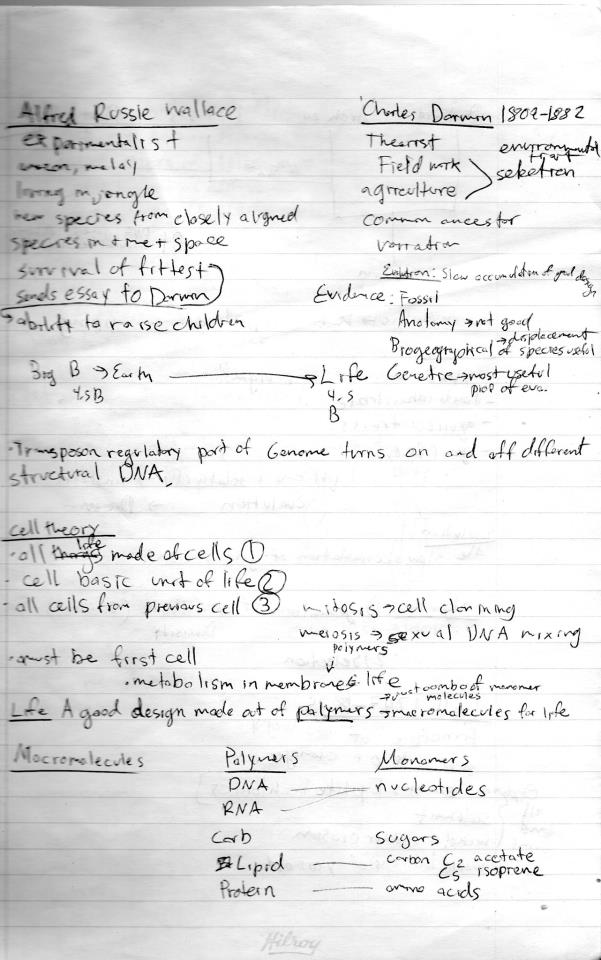 Alfred Russle Wallace
experimentalist
malay
living in jungle
new species from closely aligned
species in time + space
survival of fittest
sends essay to Darwin
ability to raise children
Charles Darwin 1809-1882
Theorist
Field work
agriculture
environmental
selection
common ancestor
variation
Evolution: Slow accumulation of good design
Evidence: Fossil
Anatomy → not good
Biogeographical → displacement of species useful
Genetic → most useful
Big B → Earth → Life
4.5B
4.5
B
· Transposon regulatory part of Genome turns on and off different
structural DNA,
Cell theory
· all life made of cells ①
· cell basic unit of life ②
· all cells from previous cell ③
mitosis → cell clonning
meiosis → sexual DNA mixing
· must be first cell
polymers
· metabolism in membranes. life
→ just combo of monomer
molecules
Life A good design made out of polymers → macromolecules for life
Macromolecules
Polymers
Monomers
DNA
nucleotides
RNA
Carb
Sugars
Lipid
carbon C2 acetate
C5 isoprene
Protein
amino acids
Hilroy